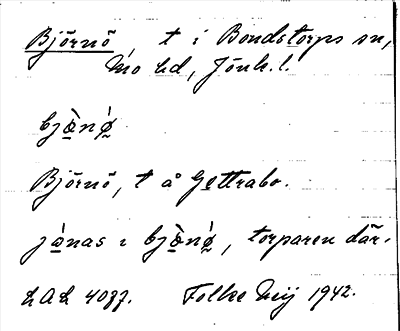 Björnö t i Bondstorps sn,
Mo hd, Jönk. l.
bjö̀nǿ
Björnö, t å Gettrabo.
jònas i bjö̀nǿ, torparen där.
LAL 4087. Folke Mij 1942.